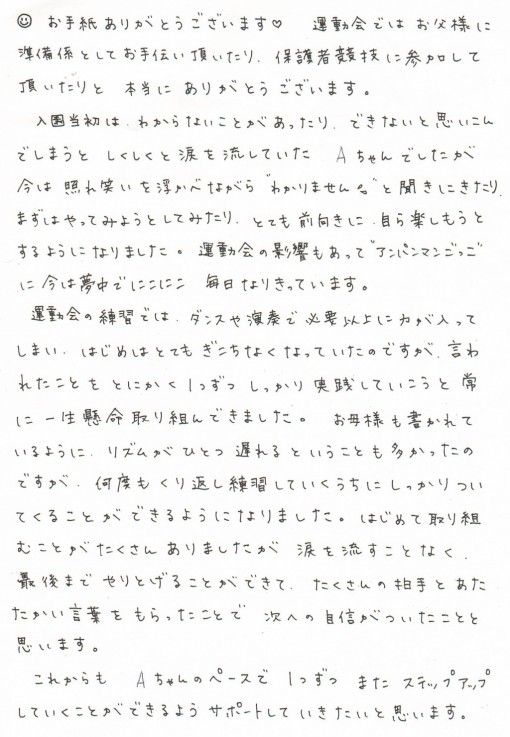 ☺ お手紙ありがとうございます♡ 運動会ではお父様に
準備係としてお手伝い頂いたり、保護者競技に参加して
頂いたりと 本当に ありがとうございます。
入園当初は、わからないことがあったり、できないと思いこん
でしまうと しくしくと涙を流していた Aちゃんでしたが
今は 照れ笑いを浮かべながら "わかりません。" と聞きにきたり、
まずはやってみようとしてみたり、とても前向きに、自ら楽しもうと
するようになりました。 運動会の影響もあって"アンパンマンごっこ"
に今は夢中でにこにこ 毎日なりきっています。
運動会の練習では、ダンスや演奏で必要以上に力が入って
しまい、はじめはとてもぎこちなくなっていたのですが、言わ
れたことを とにかく 1つずつ しっかり 実践していこうと 常
に 一生懸命 取り組んできました。 お母様も書かれて
いるように、リズムがひとつ 遅れる ということも多かったの
ですが、何度も くり返し練習していくうちに しっかりつい
てくることができるようになりました。はじめて取り組
むことがたくさんありましたが 涙を流すことなく、
最後まで やりとげることができて、たくさんの拍手とあた
たかい言葉をもらったことで 次への自信がついたことと
思います。
これからも Aちゃんのペースで 1つずつ また ステップアップ
していくことができるよう サポートして いきたいと思います。